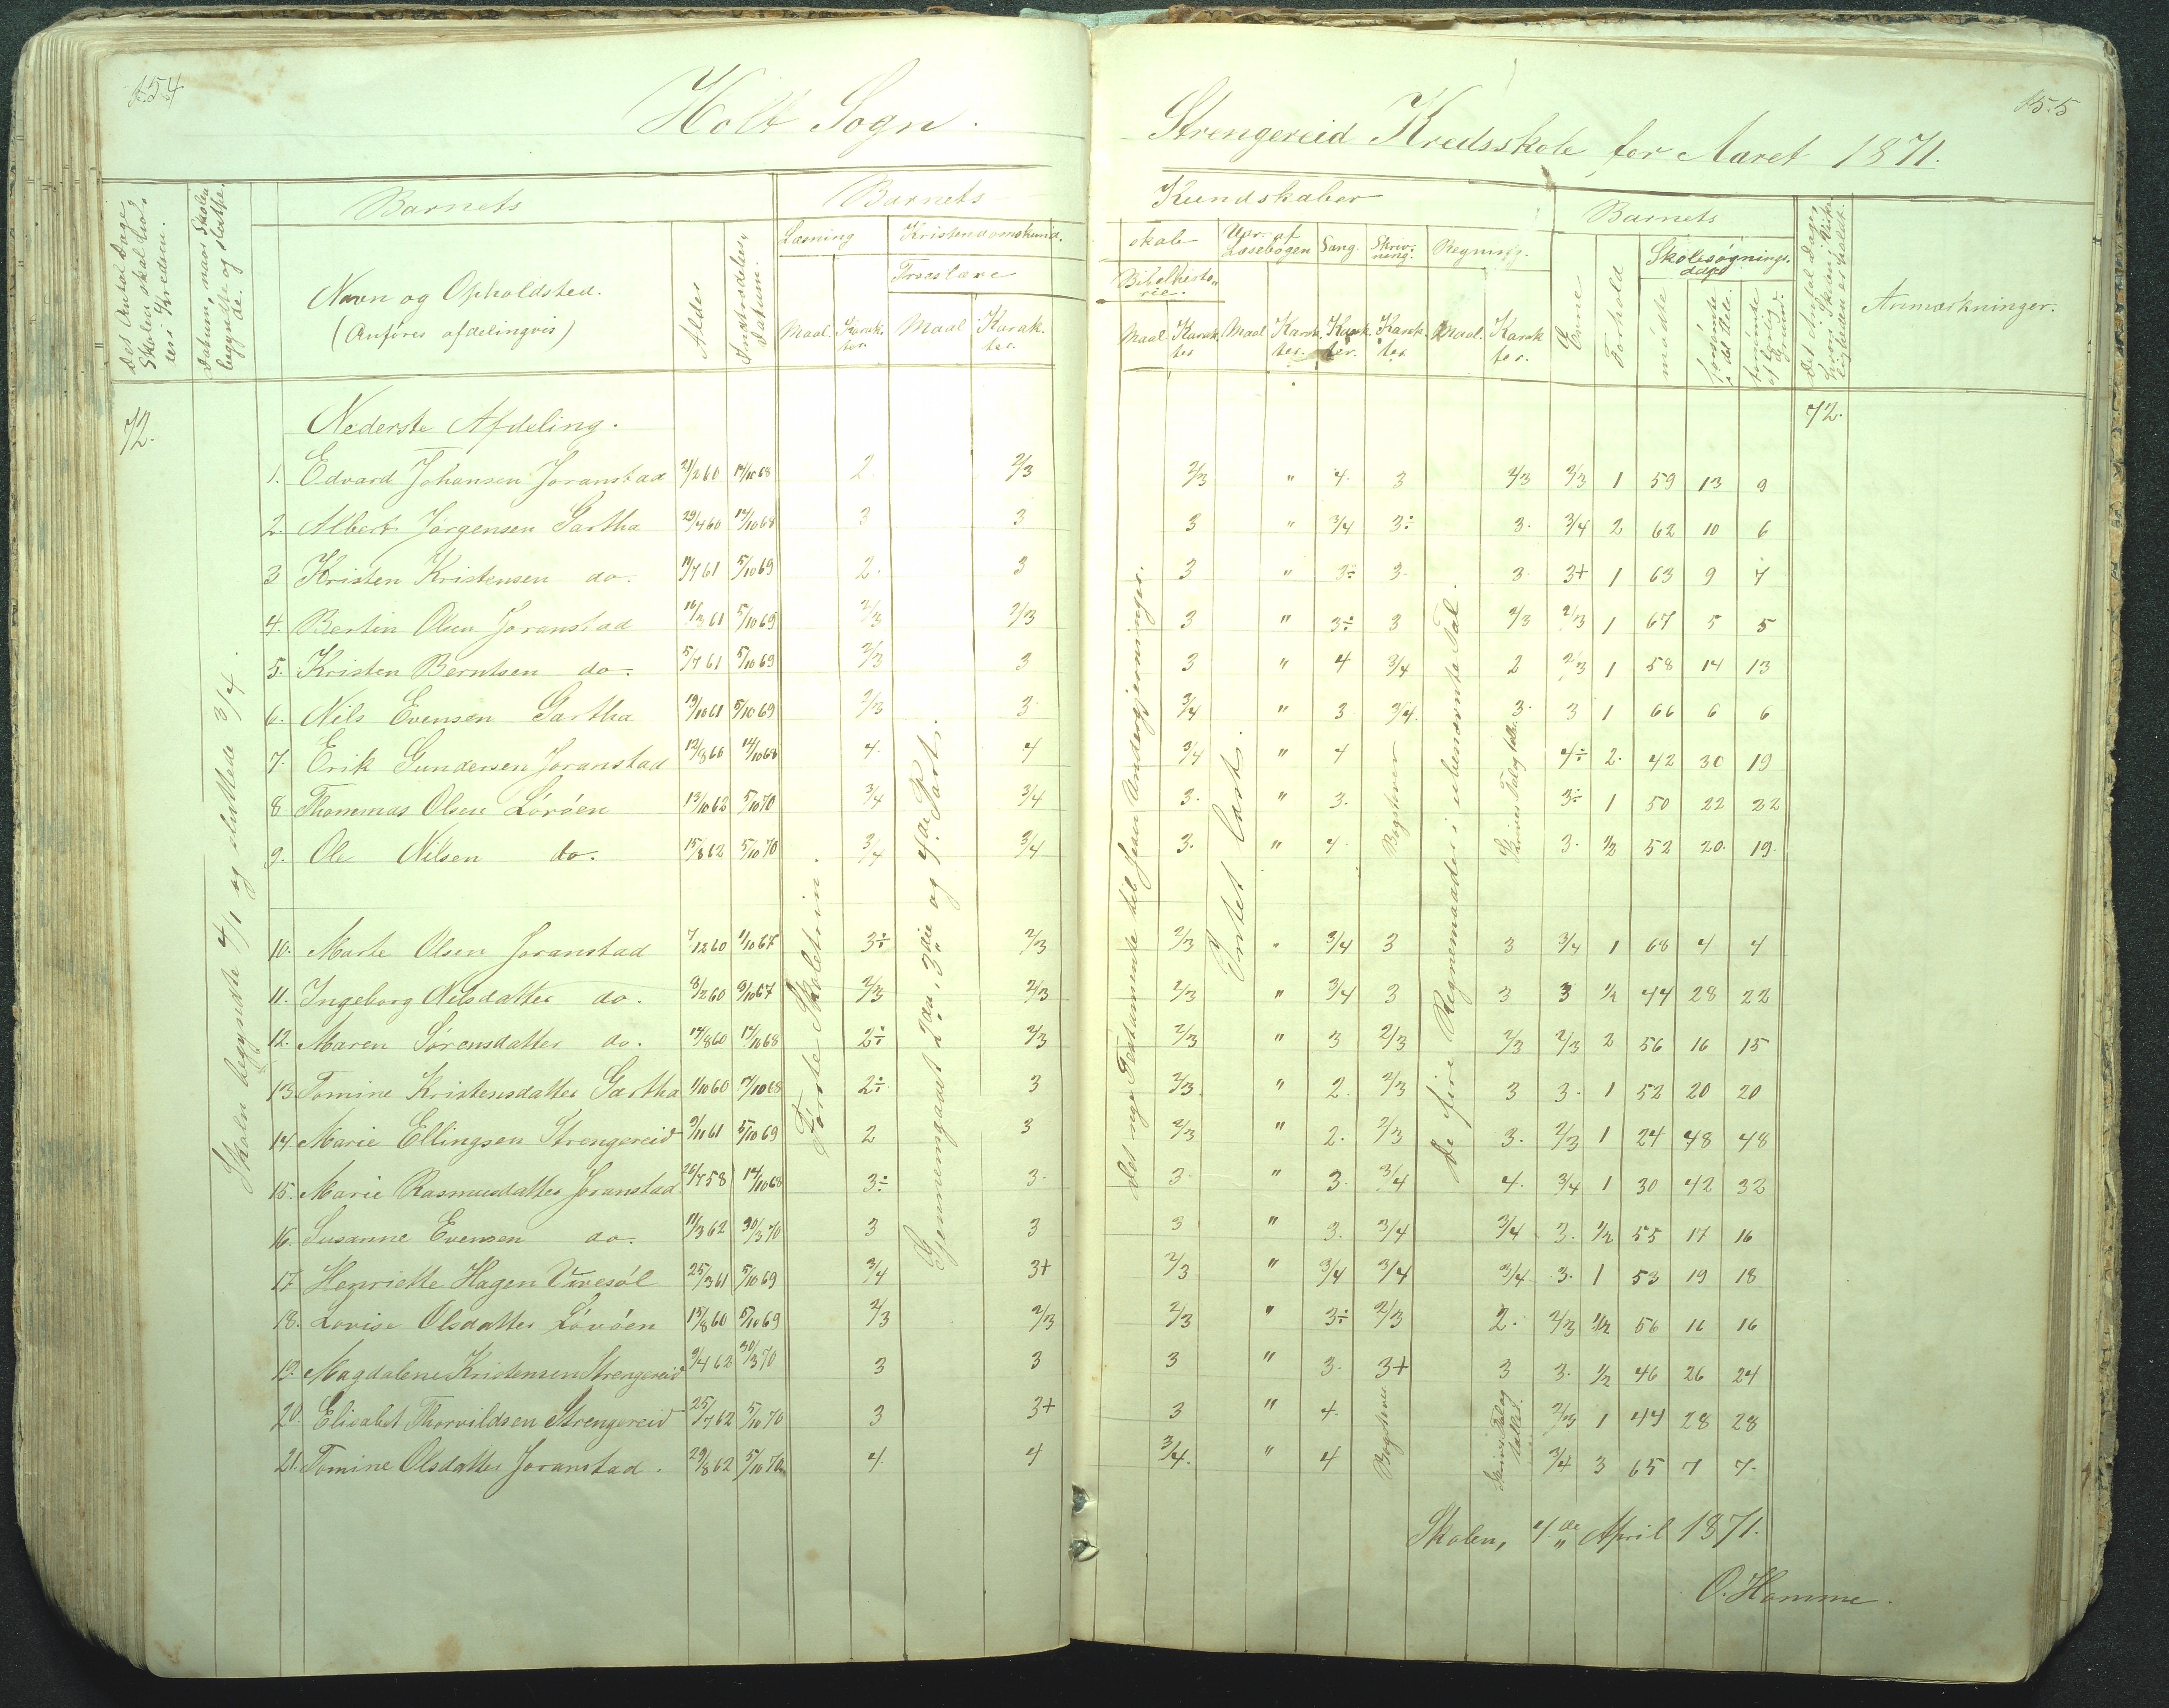 154
Holt Sogn.
Det Antal Dage Skolen skal holdes i Kredsen.
Datum, naar Skolen begyndte og sluttede.
Barnets
Navn og Opholdsted.
(Anføres afdelingvis)
Alder
Indtrædelses Datum.
Barnets
Læsning
Maal. Karakter.
Kristendomskund.
Troeslære
Maal Karakter.
72.
Skolen begyndte 4/1 og sluttede 3/4.
Første Skoletrin.
Gjennemgaaet 2den, 3die og 4de Part.
Nederste Afdeling.
1. Edvard Johansen Joranstad 21/2 60 14/10 68 2. 2/3
2. Albert Jørgensen Gartha 29/4 60 14/10 68 3 3
3 Kristen Kristensen do. 11/7 61 5/10 69 2. 3
4. Bertin Olsen Joranstad 16/3 61 5/10 69 2/3 2/3
5. Kristen Berntsen do. 5/7 61 5/10 69 2/3 3
6. Nils Evensen Gartha 19/10 61 5/10 69 2/3 3
7. Erik Gundersen Joranstad 12/8 60 14/10 68 4. 4
8 Thommas Olsen Løvøen 13/10 62 5/10 70 3/4 3/4
9. Ole Nilsen do. 15/8 62 5/10 70 3/4 3/4
10. Marte Olsen Joranstad 7/12 60 1/10 67 3÷ 2/3
11. Ingeborg Nilsdatter do. 8/2 60 9/10 67 2/3 2/3
12. Maren Sørensdatter do. 14/8 60 14/10 68 2÷ 2/3
13. Tomine Kristensdatter Gartha 1/10 60 14/10 68 2÷ 3
14. Marie Ellingsen Strengereid 9/11 61 5/10 69 2 3
15. Marie Rasmusdatter Joranstad 26/7 58 14/10 68 3÷ 3.
16. Susanne Evensen do. 11/3 62 30/3 70 3 3
17. Henriette Hagen 25/3 61 5/10 69 3/4 3+
18. Lovise Olsdatter Løvøen 15/8 60 5/10 69 2/3 2/3
19. Magdalene Kristensen Strengereid 9/4 62 30/3 70 3 3
20. Elisabet Thorvildsen Strengereid 25/7 62 5/10 70 3 3+
21. Tomine Olsdatter Joranstad. 29/8 62 5/10 70 4. 4
155
Strengereid Kredsskole for Aaret 1871.
Kundskaber
skab
Bibelhistorie.
Maal Karakter
Udv. af Læsebogen
Maal Karakter.
Sang.
Karakter.
Skrivning.
Karakter
Regning.
Maal. Karakter.
Barnets
Evne
Forhold
Skolesøgningsdage
mødte
forsømte i det Hele.
forsømte af lovlig Grund.
Det Antal Dage, hvori Skolen i Virkeligheden er holdt.
Anmærkninger.
72.
det nye Testamente til Jesu Undergjerninger.
Intet læst.
de fire Regnemaader i ubenævnte Tal.
2/3 " 4. 3 2/3 2/3 1 59 13 9
3 " 3/4 3÷ 3. 3/4 2 62 10 6
3 " 3÷ 3. 3. 3+ 1 63 9 7
3 " 3÷ 3 2/3 2/3 1 67 5 5
3 " 4 3/4 2 2/3 1 58 14 13
3/4 " 3 3/4. 3. 3 1 66 6 6
3/4 " 4 Bogstaver Skriver Tal og tæller. 4÷ 2. 42 30 19
3. " 3. 3÷ 1 50 22 22
3. " 4. 3. 1/2 52 20. 19.
2/3 " 3/4 3 3 3/4 1 68 4 4
2/3 " 3/4 3 3 3 1/2 44 28 22
2/3 " 3 2/3 2/3 2/3 2 56 16 15
2/3. " 2. 2/3 3 3. 1 52 20 20
2/3 " 2. 2/3 3. 2/3 1 24 48 48
3. " 3. 3/4 4. 3/4 1 30 42 32
3 " 3. 3/4 3/4 3. 1/2 55 17 16
2/3 " 3/4 3/4 3/4 3. 1 53 19 18
2/3 " 3÷ 2/3 2. 2/3 1/2 56 16 16
3 " 3. 3+ 3 3. 1/2 46 26 24
3 " 4. Bogstaver Skriver Tal og tæller. 2/3 1 44 28 28
3/4. " 4 3/4 3 65 7 7.
Skolen, 4de April 1871.
O. Hamme.